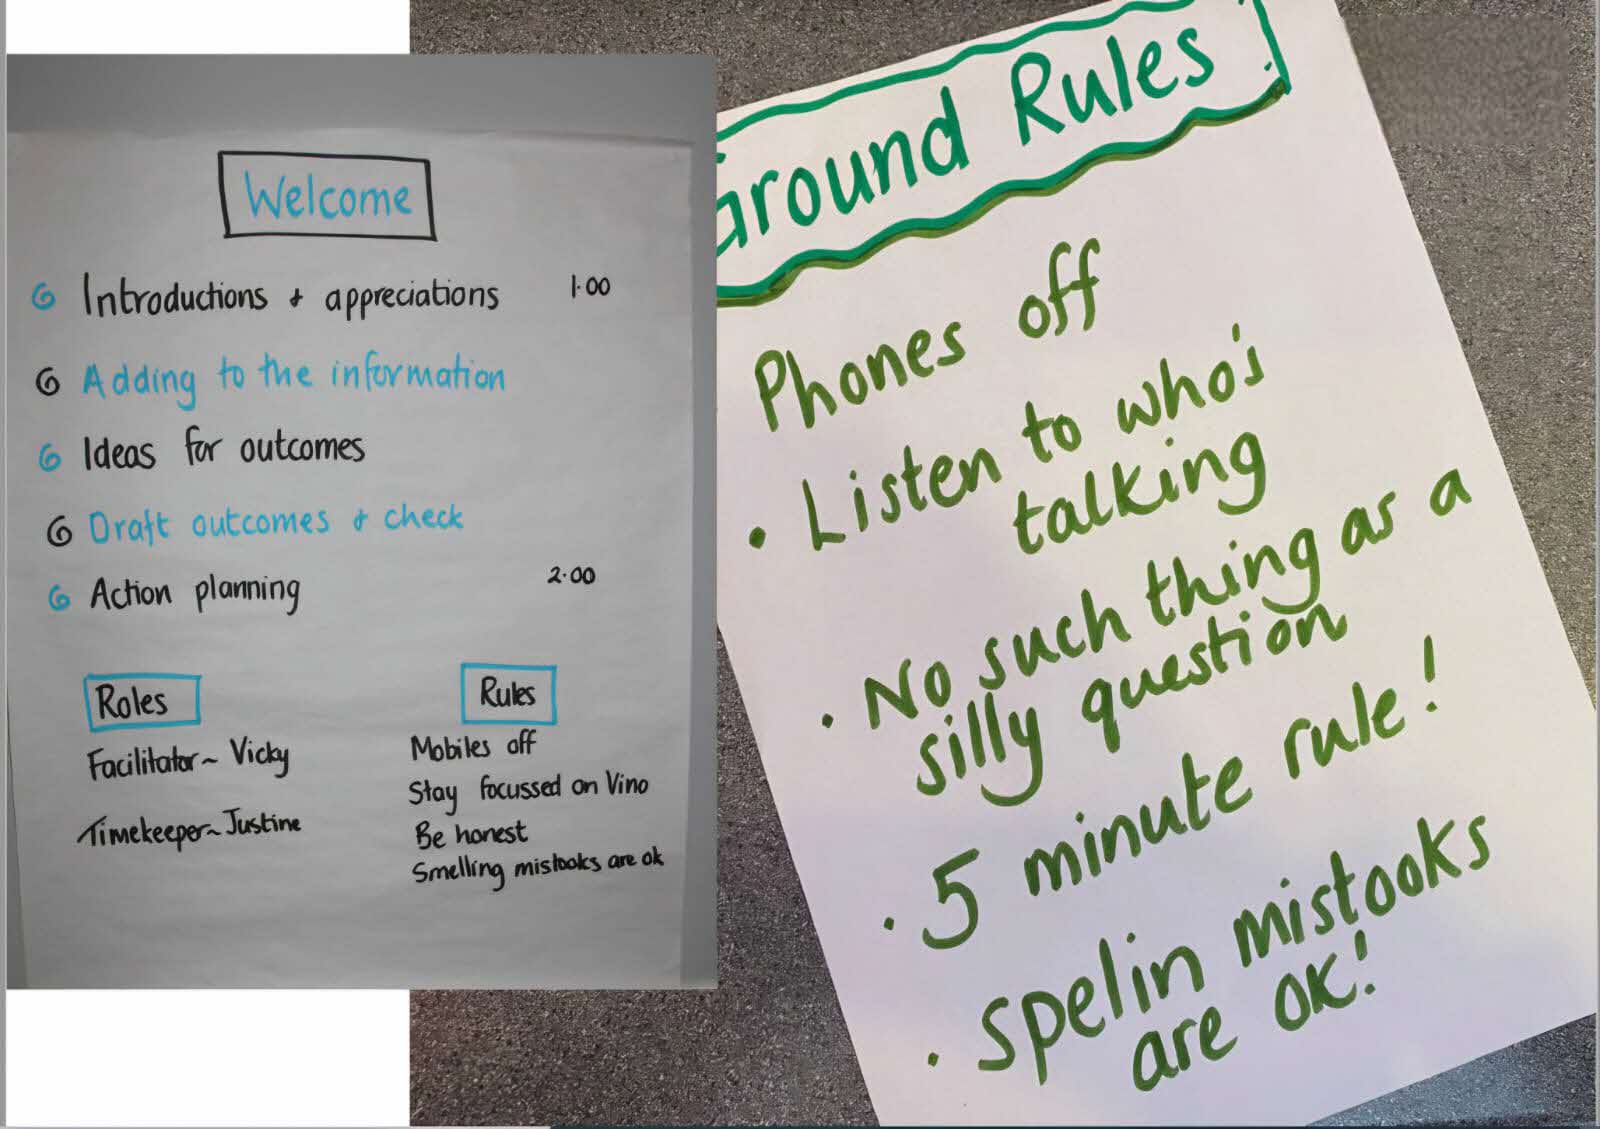 Welcome
Introductions & appreciations 1.00
Adding to the information
Ideas for outcomes
Draft outcomes & check
Action planning 2.00
Roles
Facilitator ~ Vicky
Timekeeper ~ Justine
Rules
Mobiles off
Stay focussed on Vino
Be honest
Smelling mistooks are ok
Ground Rules
Phones off
• Listen to who's
talking
• No such thing as a
silly question
• 5 minute rule!
• spelin mistooks
are OK!